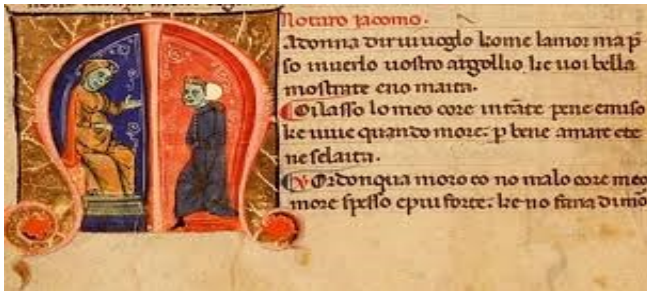 Notaro Jacomo.
adonna dir uiuoglo kome lamor map̄
so inuerlo uostro argollio. ke uoi bella
mostrate eno maita.
Oilasso lomeo core intāte pene emiso
ke uiue quando more. p bene amare ete
neselaita.
Ordonqua moro eo no malo core meo
more spesso epiu forte. ke no faria di